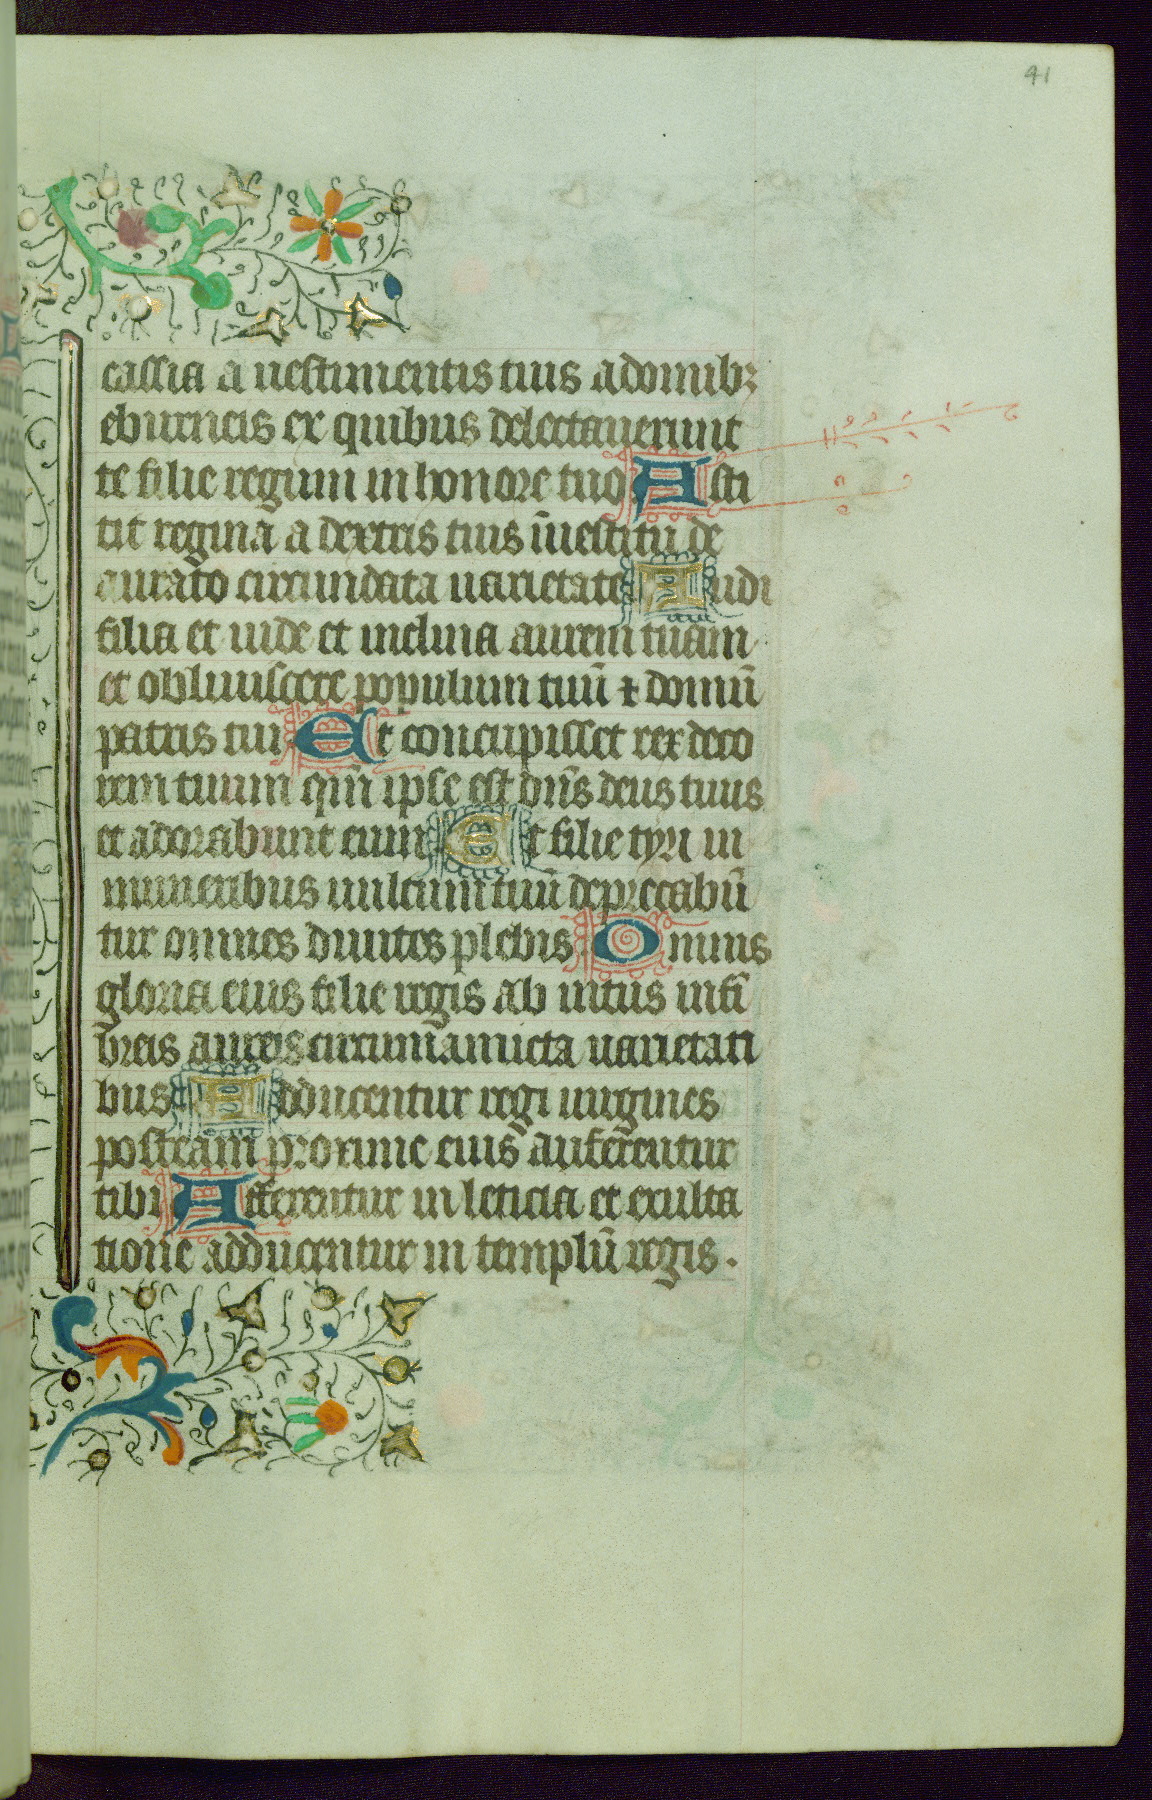 41
cassia a uestimentis tuis a domibꝫ
eburneis ex quibus delectauerunt
te filie regum in honore tuo Asti
tit regina a dextris tuis ī uestitu de
aurato circundata uarietate Audi
filia et uide et inclina aurem tuam
et obliuiscere populum tuū ⁊ domū
patris tui Et concupisset rex deco
rem tuum qm̄ ipse est dn̄s deus tuus
et adorabunt eum Et filie tyri in
muneribus uultum tuū deprecabū
tur omnes diuites plebis Omnis
gloria eius filie regis ab intus in fī
breis aureis circumamicta uarietati
bus Adducentur regi uirgines
post eam proxime eius auferentur
tibi Afferentur in leticia et exulta
tione adducentur in templū regis.